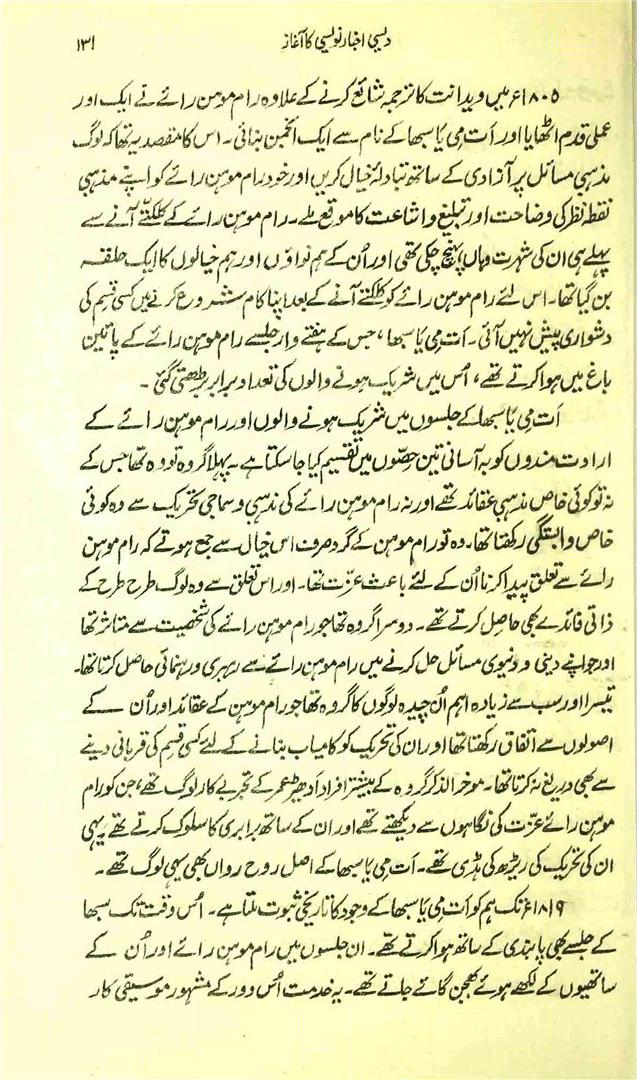 دیسی اخبار نویسی کا آغاز
۱۳۱
۱۸۰۵ء میں ویدانت کا ترجمہ شائع کرنے کے علاوہ رام موہن رائے نے ایک اور
عملی قدم اٹھایا اور اَت می یا سبھا کے نام سے ایک انجمن بنائی۔ اس کا مقصد یہ تھا کہ لوگ
مذہبی مسائل پر آزادی کے ساتھ تبادلۂ خیال کریں اور خود رام موہن رائے کو اپنے مذہبی
نقطۂ نظر کی وضاحت اور تبلیغ و اشاعت کا موقع ملے۔ رام موہن رائے کے کلکتّے آنے سے
پہلے ہی ان کی شہرت وہاں پہنچ چکی تھی اور اُن کے ہم نواؤں اور ہم خیالوں کا ایک حلقہ
بن گیا تھا۔ اس لئے رام موہن رائے کو کلکتے آنے کے بعد اپنا کام شروع کرنے میں کسی قسم کی
دشواری پیش نہیں آئی۔ اَت می یا سبھا، جس کے ہفتے وار جلسے رام موہن رائے کے پائین
باغ میں ہوا کرتے تھے، اُس میں شریک ہونے والوں کی تعداد برابر بڑھتی گئی۔
اَت می یا سبھا کے جلسوں میں شریک ہونے والوں اور رام موہن رائے کے
ارادت مندوں کو بہ آسانی تین حصّوں میں تقسیم کیا جا سکتا ہے۔ پہلا گروہ تو وہ تھا جس کے
نہ تو کوئی خاص مذہبی عقائد تھے اور نہ رام موہن رائے کی مذہبی و سماجی تحریک سے وہ کوئی
خاص وابستگی رکھتا تھا۔ وہ تو رام موہن کے گرد صرف اس خیال سے جمع ہوتے کہ رام موہن
رائے سے تعلق پیدا کرنا اُن کے لئے باعث عزّت تھا۔ اور اس تعلق سے وہ لوگ طرح طرح کے
ذاتی فائدے بھی حاصل کرتے تھے۔ دوسرا گروہ تھا جو رام موہن رائے کی شخصیت سے متاثر تھا
اور جو اپنے دینی و دنیوی مسائل حل کرنے میں رام موہن رائے سے رہبری و رہنمائی حاصل کرتا تھا۔
تیسرا اور سب سے زیادہ اہم اُن چیدہ لوگوں کا گروہ تھا جو رام موہن کے عقائد اور اُن کے
اصولوں سے اتفاق رکھتا تھا اور ان کی تحریک کو کامیاب بنانے کے لئے کسی قسم کی قربانی دینے
سے بھی دریغ نہ کرتا تھا۔ موخر الذکر گروہ کے بیشتر افراد اَدھیڑ عمر کے تجربے کار لوگ تھے، جن کو رام
موہن رائے عزّت کی نگاہوں سے دیکھتے تھے اور ان کے ساتھ برابری کا سلوک کرتے تھے یہی
ان کی تحریک کی ریڑھ کی ہڈی تھے۔ اَت می یا سبھا کے اصل روح رواں بھی یہی لوگ تھے۔
۱۸۱۹ء تک ہم کو اَت می یا سبھا کے وجود کا تاریخی ثبوت ملتا ہے۔ اُس وقت تک سبھا
کے جلسے بھی پابندی کے ساتھ ہوا کرتے تھے۔ ان جلسوں میں رام موہن رائے اور اُن کے
ساتھیوں کے لکھے ہوئے بھجن گائے جاتے تھے۔ یہ خدمت اُس دور کے مشہور موسیقی کار